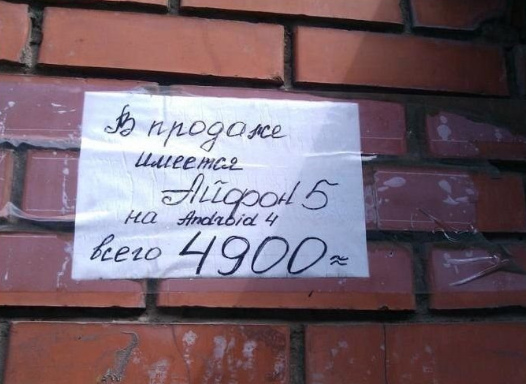 В продаже
имеется
Айфон 5
на Android 4
всего 4900=